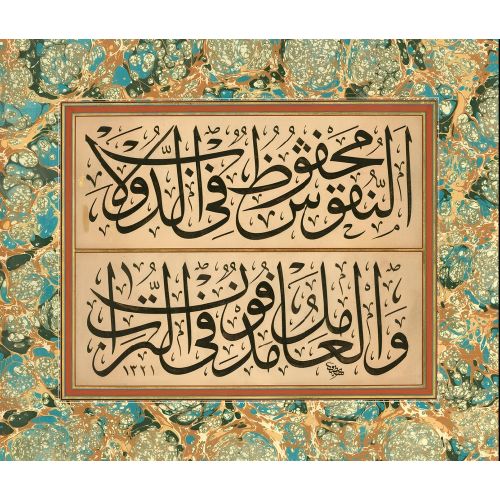 النقوش محفوظ في الدولاب
والعامل مدفون في التراب
١٣١١